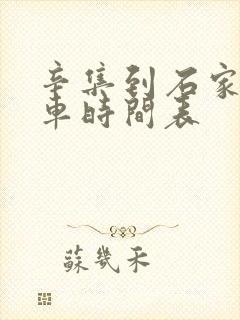 辛集到石家
車時間表
蘇幾禾